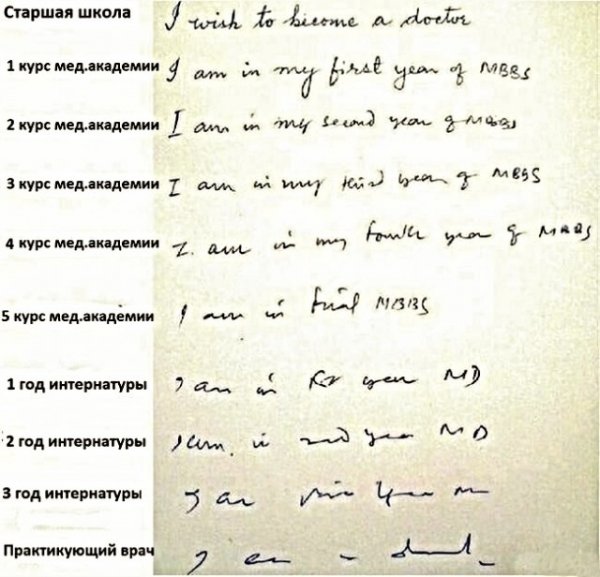 Старшая школа I wish to become a doctor
1 курс мед.академии I am in my first year of MBBS
2 курс мед.академии I am in my second year of MBBS
3 курс мед.академии I am in my third year of MBBS
4 курс мед.академии I am in my fourth year of MBBS
5 курс мед.академии I am in final MBBS
1 год интернатуры I am in year MD
2 год интернатуры I am in 2nd year MD
3 год интернатуры I am
Практикующий врач I